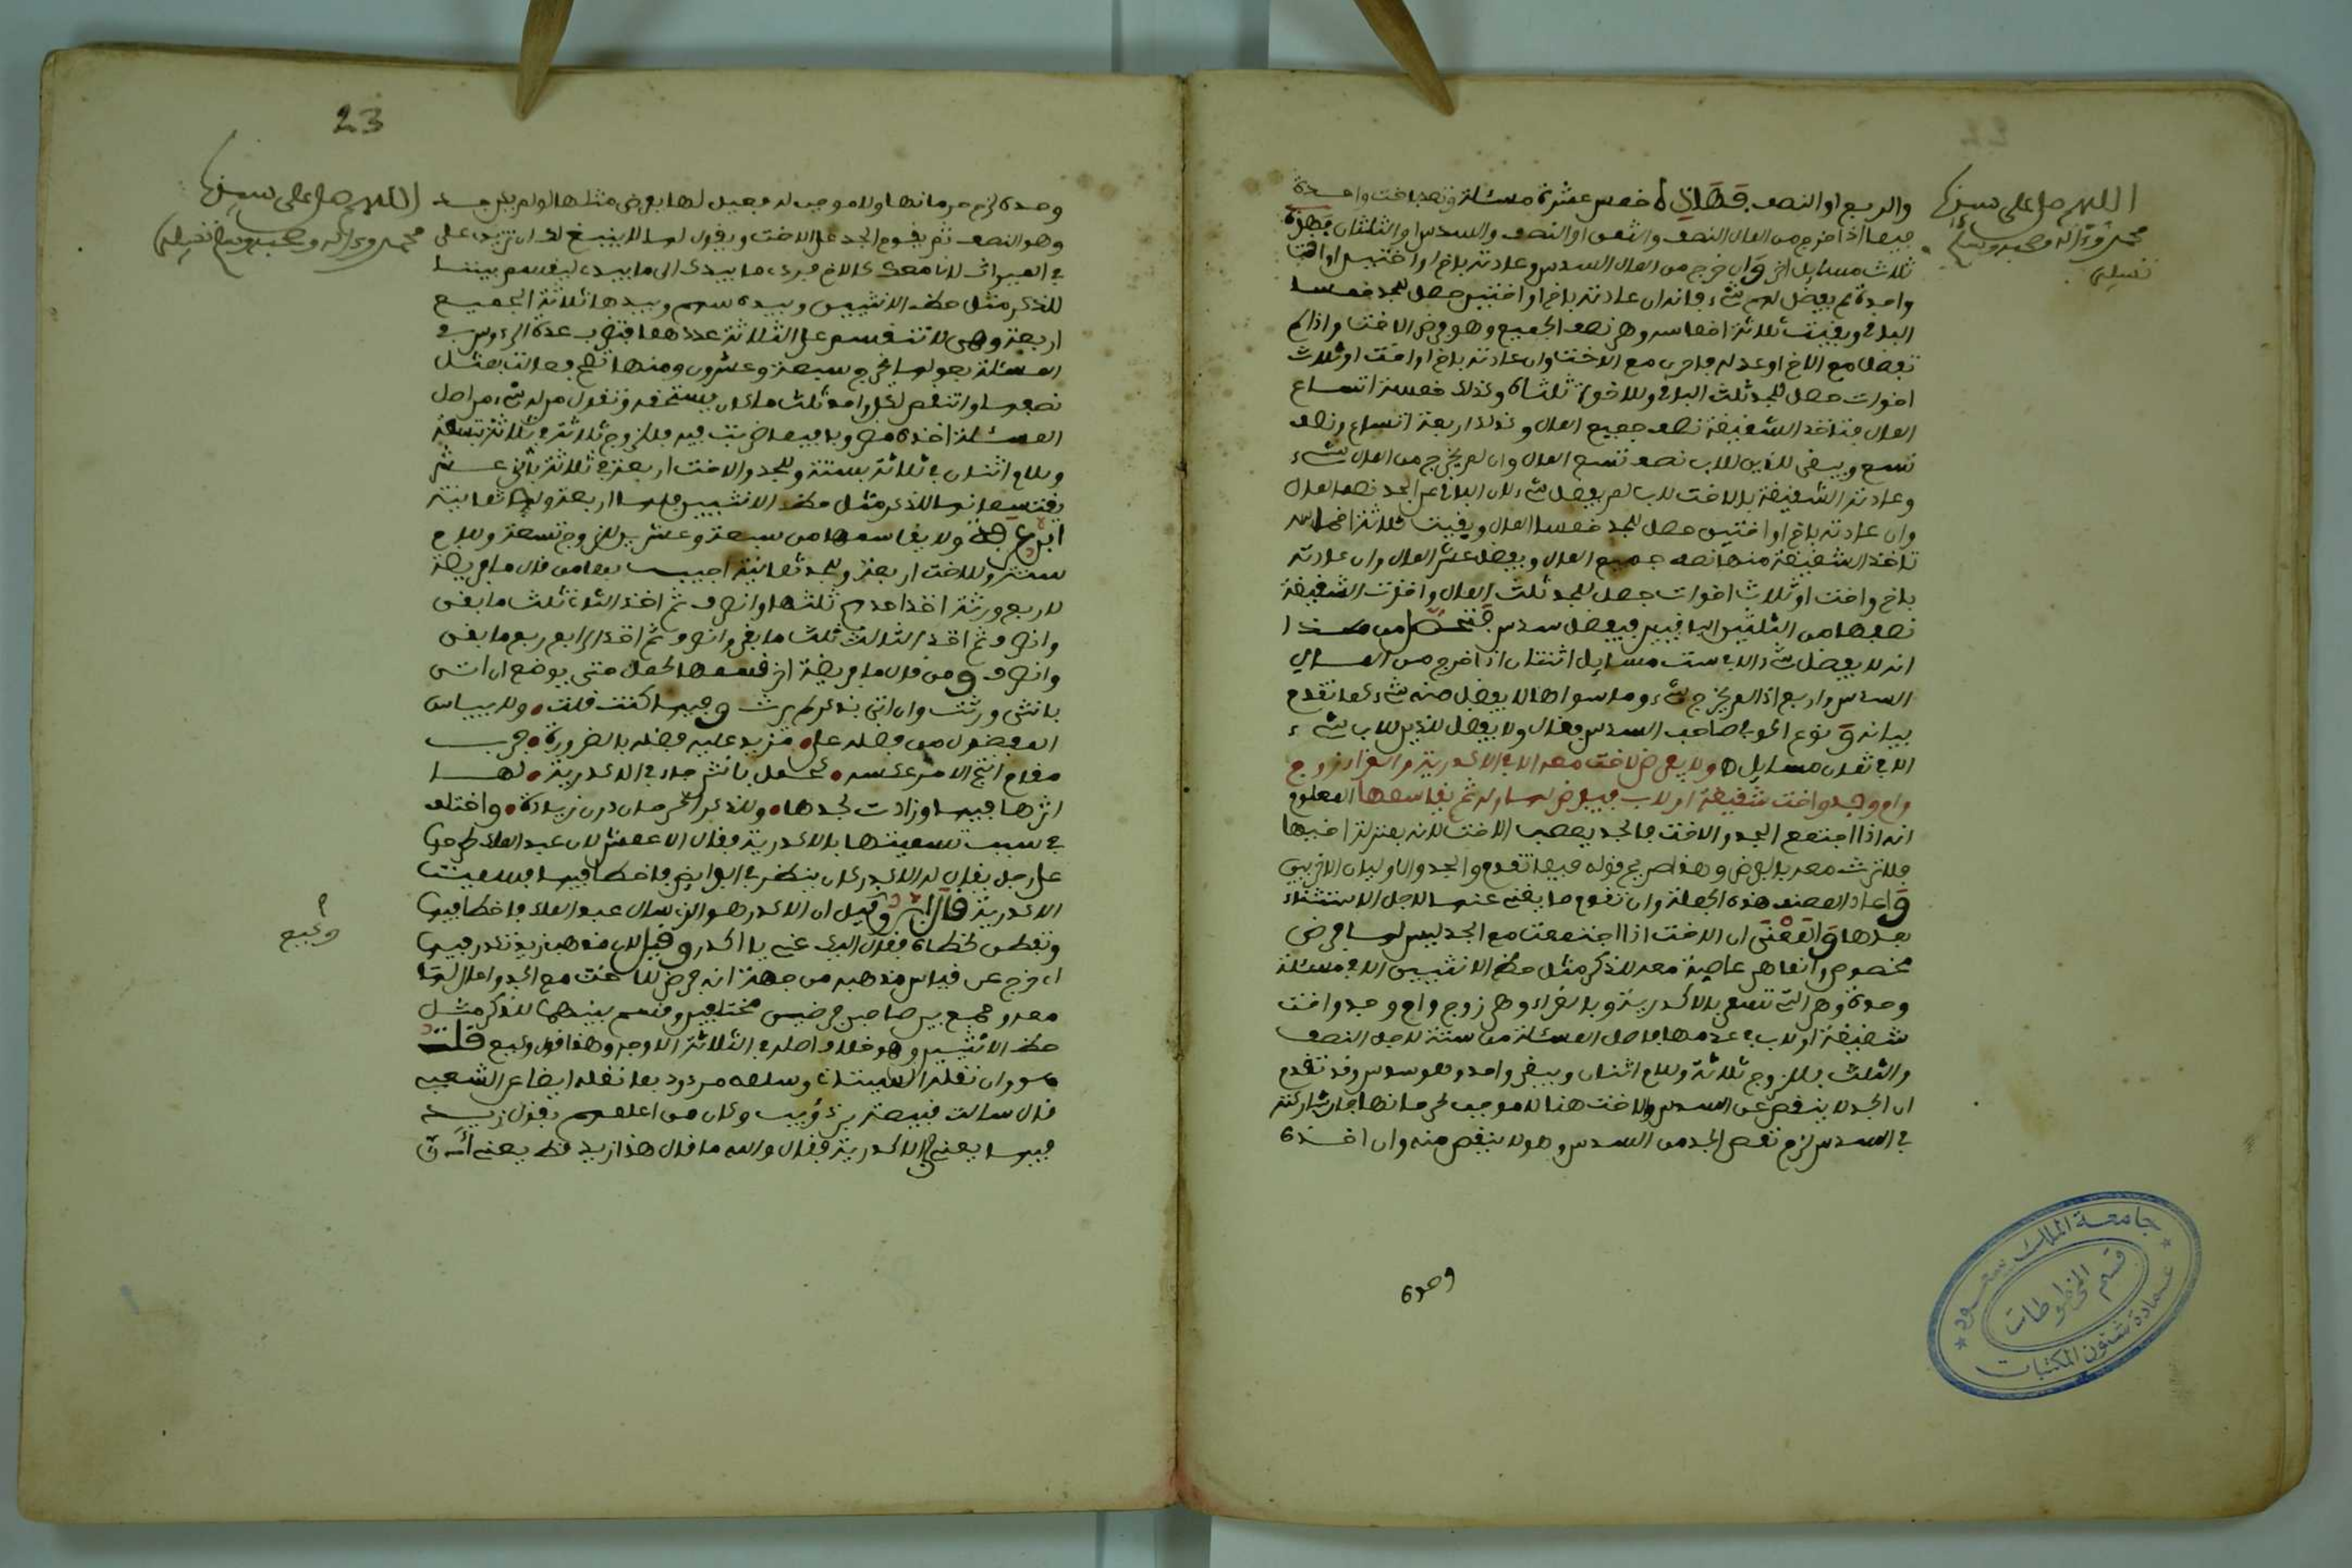 اللهم صل على سيدنا
محمد وءاله وصحبه وسلم
تسليما
والربع او النصف فهذه خمس عشرة مسئلة وتعد باخت واحدة
فيها اذا خرج من المال النصف والثمن او النصف والسدس او الثلثان فهذه
ثلاث مسايل اخر وان خرج من المال السدس وعادته باخ او اختين او اخت
واحدة لم يفضل لهم شيء فانه ان عادته باخ او اختين حصل للجد خمسا
الباقي وبقيت ثلاثة اخماسه وهي نصف الجميع وهو فرض الاخت واذا لم
تفضل مع الاخ او عدله فاحرى مع الاخت وان عادته باخ او اخت او ثلاث
اخوات حصل للجد ثلث الباقي وللاخوة ثلثاه وذلك خمسة اتساع
المال فتاخذ الشقيقة نصف جميع المال وذلك اربعة اتساع ونصف
تسع ويبقى للذين للاب نصف تسع المال وان لم يخرج من المال شيء
وعادته الشقيقة بالاخت للاب لم يفضل شيء لان الباقي عن الجد نصف المال
وان عادته باخ او اختين حصل للجد خمسا المال وبقيت ثلاثة اخماس
تاخذ الشقيقة منها نصف جميع المال ويفضل عشر المال وان عادته
باخ واخت او ثلاث اخوات حصل للجد ثلث المال واخذت الشقيقة
نصفها من الثلثين الباقيين فيفضل سدس فتحصل من هذا
انه لا يفضل شيء الا في ست مسايل اثنتان اذا خرج من المال
السدس واربع اذا لم يخرج شيء وما سواها لا يفضل منه شيء كما تقدم
بيانه ونوع الحوفي صاحب السدس فقال ولا يفضل للذين للاب شيء
الا في ثمان مسايل ولا يفرض لاخت معه الا في الاكدرية والغراء زوج
وام وجد واخت شقيقة او لاب فيفرض لها وله ثم يقاسمها المعلوم
انه اذا اجتمع الجد والاخت فالجد يعصب الاخت لانه بمنزلة اخيها
فلا ترث معه بالفرض وهذا صريح قوله فيما تقدم والجد والاوليان الاخريين
واعاد المصنف هذه الجملة وان تقوم ما يغني عنها لاجل الاستثناء
بعدها والمعنى ان الاخت اذا اجتمعت مع الجد ليس لها فرض
مخصوص وانما هي عاصبة معه للذكر مثل حظ الانثيين الا في مسئلة
وحدة وهي التي تسمى بالاكدرية وبالغراء وهي زوج وام وجد واخت
شقيقة او لاب في عدمها فاصل المسئلة من ستة لاجل النصف
والثلث فللزوج ثلاثة وللام اثنان ويبقى واحد وهو سدس وقد تقدم
ان الجد لا ينقص عن السدس والاخت هنا لا موجب لحرمانها فان شاركته
في السدس لزم نقص الجد من السدس وهو لا ينقص منه وان اخذه
وحده
23
اللهم صل على سيدنا
محمد وءاله وصحبه وسلم تسليما
وحده لزم حرمانها ولا موجب له فيعيل لها بفرض مثلها لو لم يكن جد
وهو النصف ثم يقوم الجد على الاخت ويقول لها لا ينبغي لك ان تزيدي على
في الميراث لانا معك كالاخ فردي ما بيدك الى ما بيدي ليقسم بيننا
للذكر مثل حظ الانثيين وبيده سهم وبيدها ثلاثة الجميع
اربعة وهي لا تنقسم على الثلاثة عددهما فتضرب عدة الرءوس في
المسئلة بعولها يخرج سبعة وعشرون ومنها تصح
لكل واحد ثلث ما كان يستحقه وتقول من له شيء من اصل
المسئلة اخذه مضروبا فيما ضربت فيه فللزوج ثلاثة في ثلاثة بتسعة
وللام اثنان في ثلاثة بستة وللجد والاخت اربعة في ثلاثة باثني عشر
يقتسمانها للذكر مثل حظ الانثيين فلها اربعة وله ثمانية
ابن عرفة ولا يقاسمها من سبعة وعشرين للزوج تسعة وللام
ستة وللاخت اربعة وللجد ثمانية اجيب بها من قال ما فريضة
لاربع ورثة اخذ احدهم ثلثها وانصرف ثم اخذ الثاني ثلث ما بقي
وانصرف ثم اخذ الثالث ثلث ما بقي وانصرف ثم اخذ الرابع ربع ما بقي
وانصرف ومن قال ما فريضة اخر قسمها لحمل حتى يوضع ان اتى
بانثى ورثت وان اتى بذكر لم يرث وفيها كنت قلت ولا يياس
المفضول من فضله على مزيد عليه فضله بالضرورة فرب
مقام انتج الامر عكسه كحمل بانثى جاء في الاكدرية لها
ارثها فيها وزادت لجدها وللذكر الحرمان دون زيادة واختلف
في سبب تسميتها بالاكدرية فقال الاعمش لان عبد الملك طرحها
على رجل يقال له الاكدر كان ينظر في الفرايض فاخطا فيها فسميت
الاكدرية وقيل ان الاكدر هو الذي سال عبد الملك فاخطا فيها
لان مذهب زيد تكدر فيها
اي خرج عن قياس مذهبه من جهة انه فرض للاخت مع الجد واعال لها
معه وجمع بين صاحبي فرضين مختلفين وقسم بينهما للذكر مثل
حظ الانثيين وهو خلاف اصله في الثلاثة الاوجه وهذا قول وكيع قلت
وكان من اعلمهم بقول زيد
فيها يعني الاكدرية فقال والله ما قال هذا زيد قط يعني انه
وكيع
جامعة الملك سعود
قسم المخطوطات
عمادة شئون المكتبات